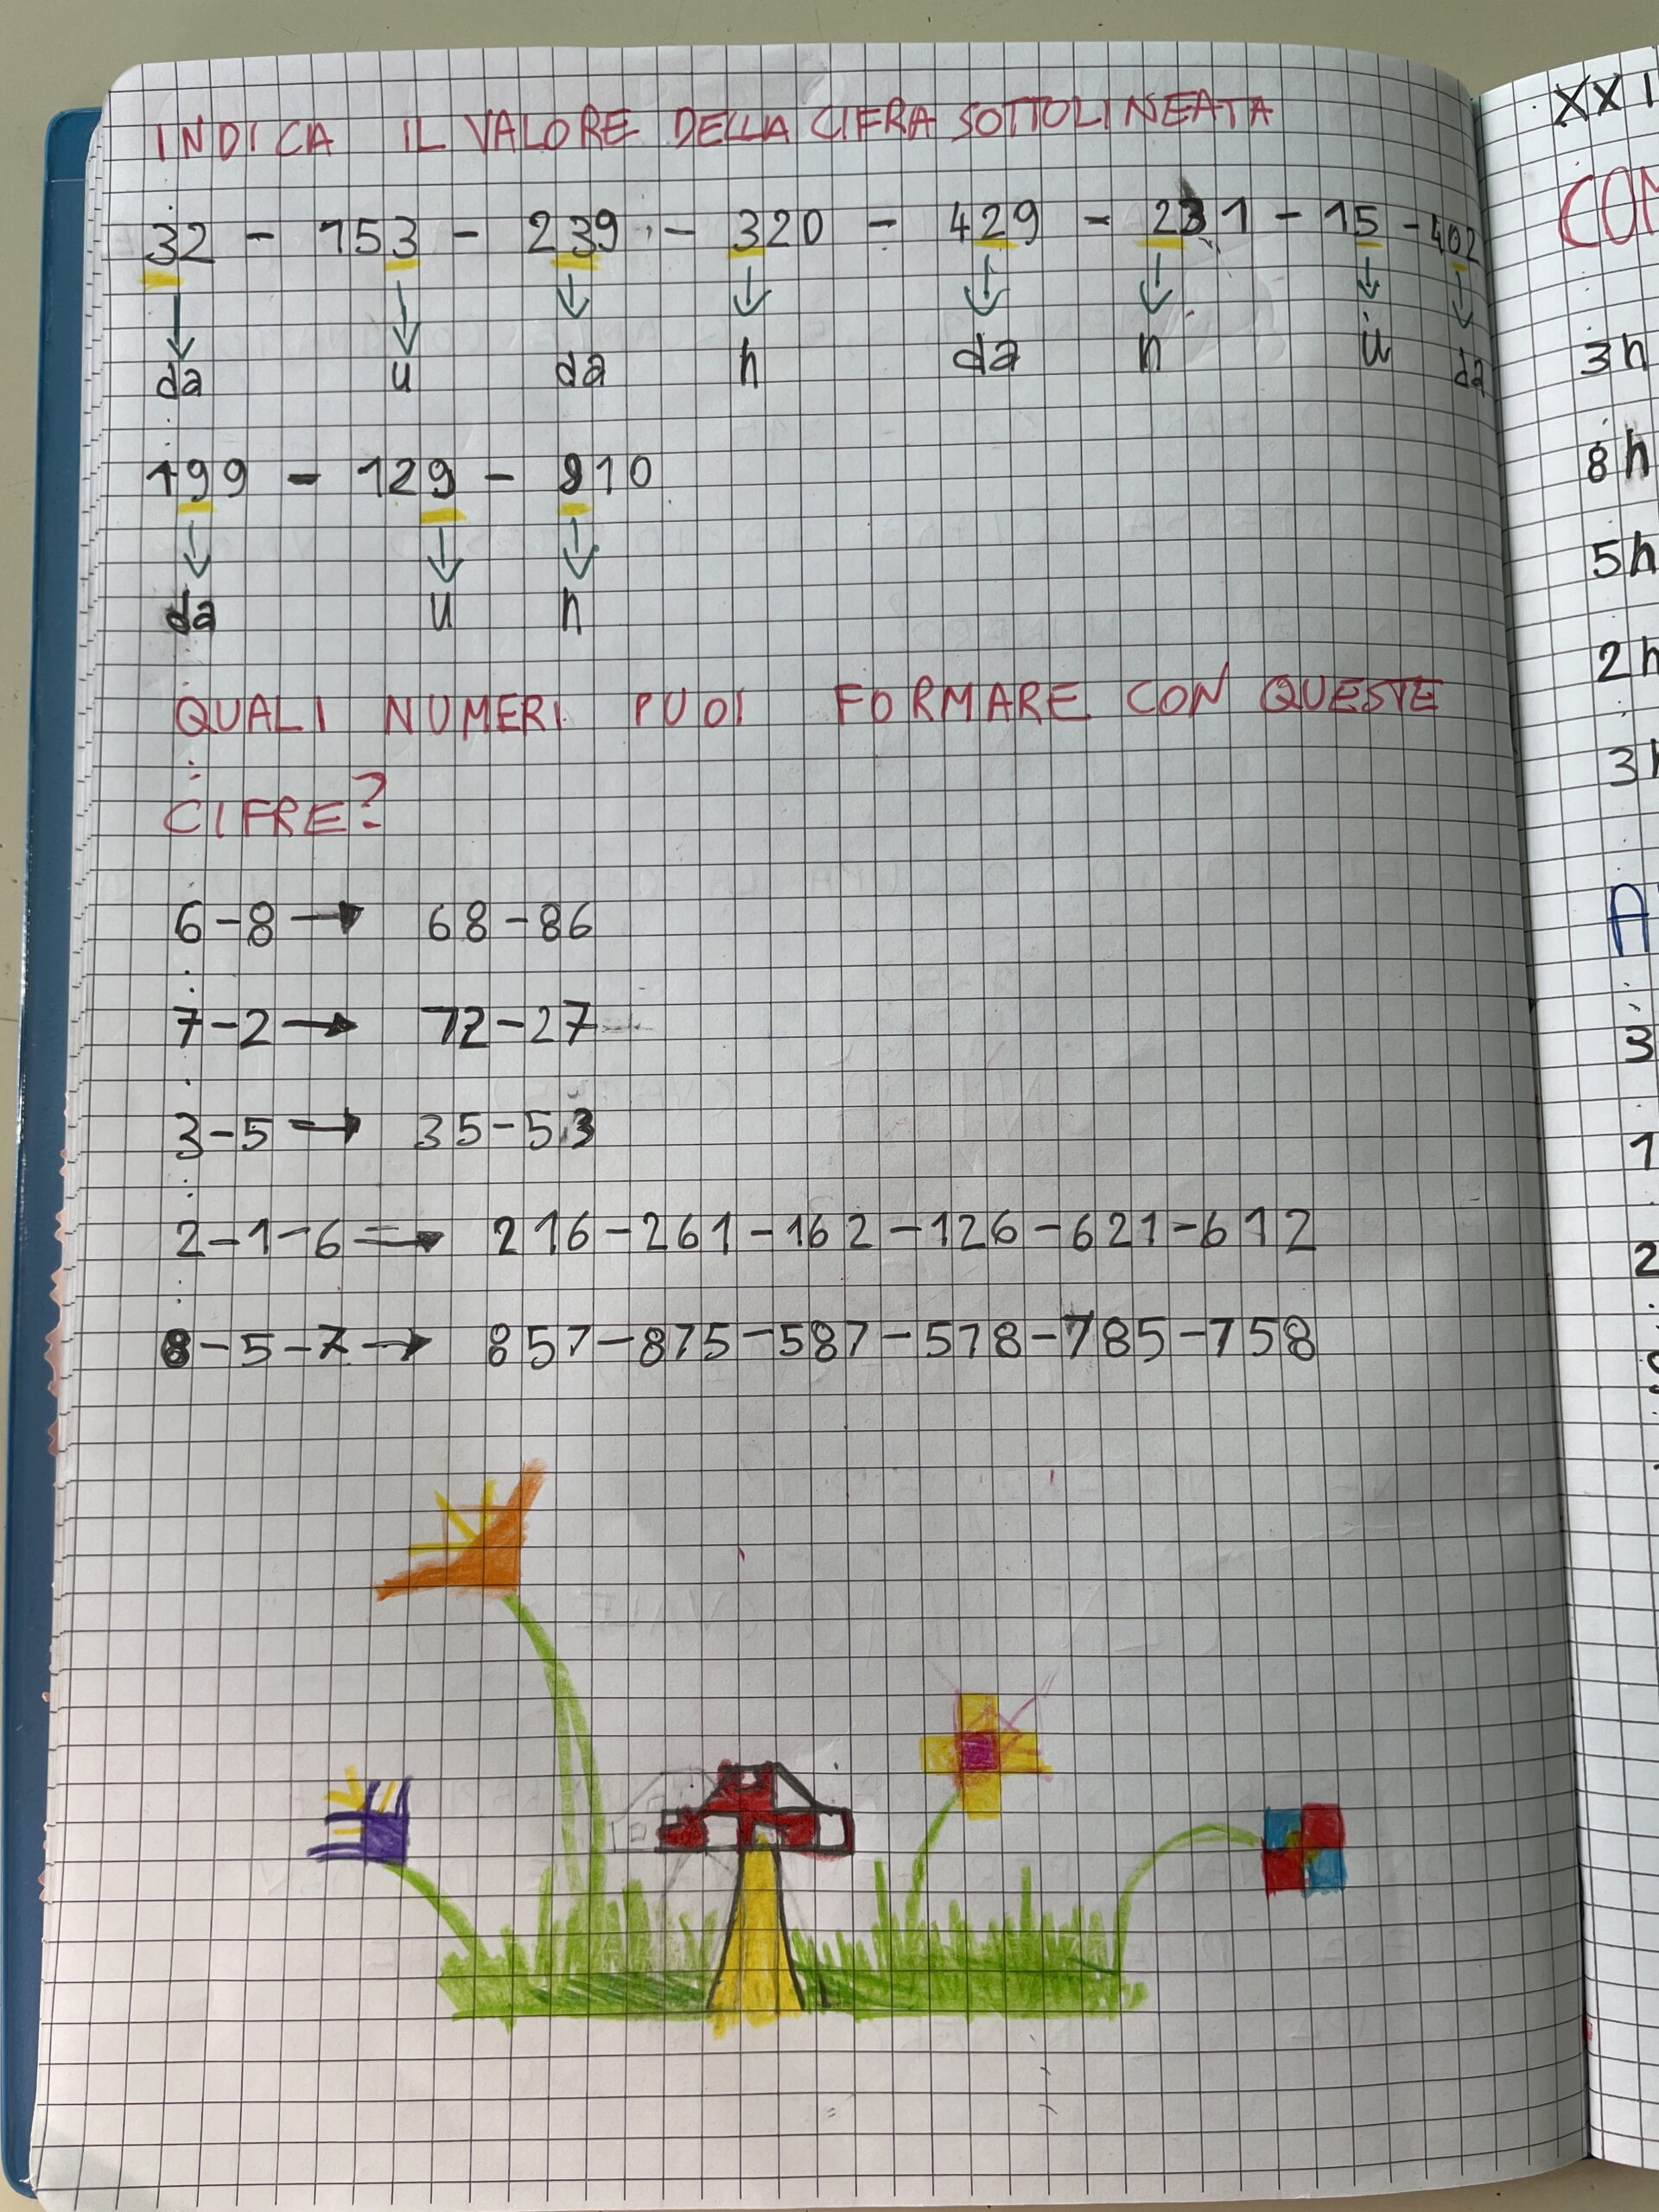 INDICA IL VALORE DELLA CIFRA SOTTOLINEATA
32 - 153 - 239 - 320 - 429 - 231 - 15 - 402
da u da h da h u da
199 - 129 - 910
da u h
QUALI NUMERI PUOI FORMARE CON QUESTE
CIFRE?
6-8 → 68-86
7-2 → 72-27
3-5 → 35-53
2-1-6 → 216-261-162-126-621-612
8-5-7 → 857-875-587-578-785-758
XXI
COM
3h
8h
5h
2h
3h
A
3
1
2